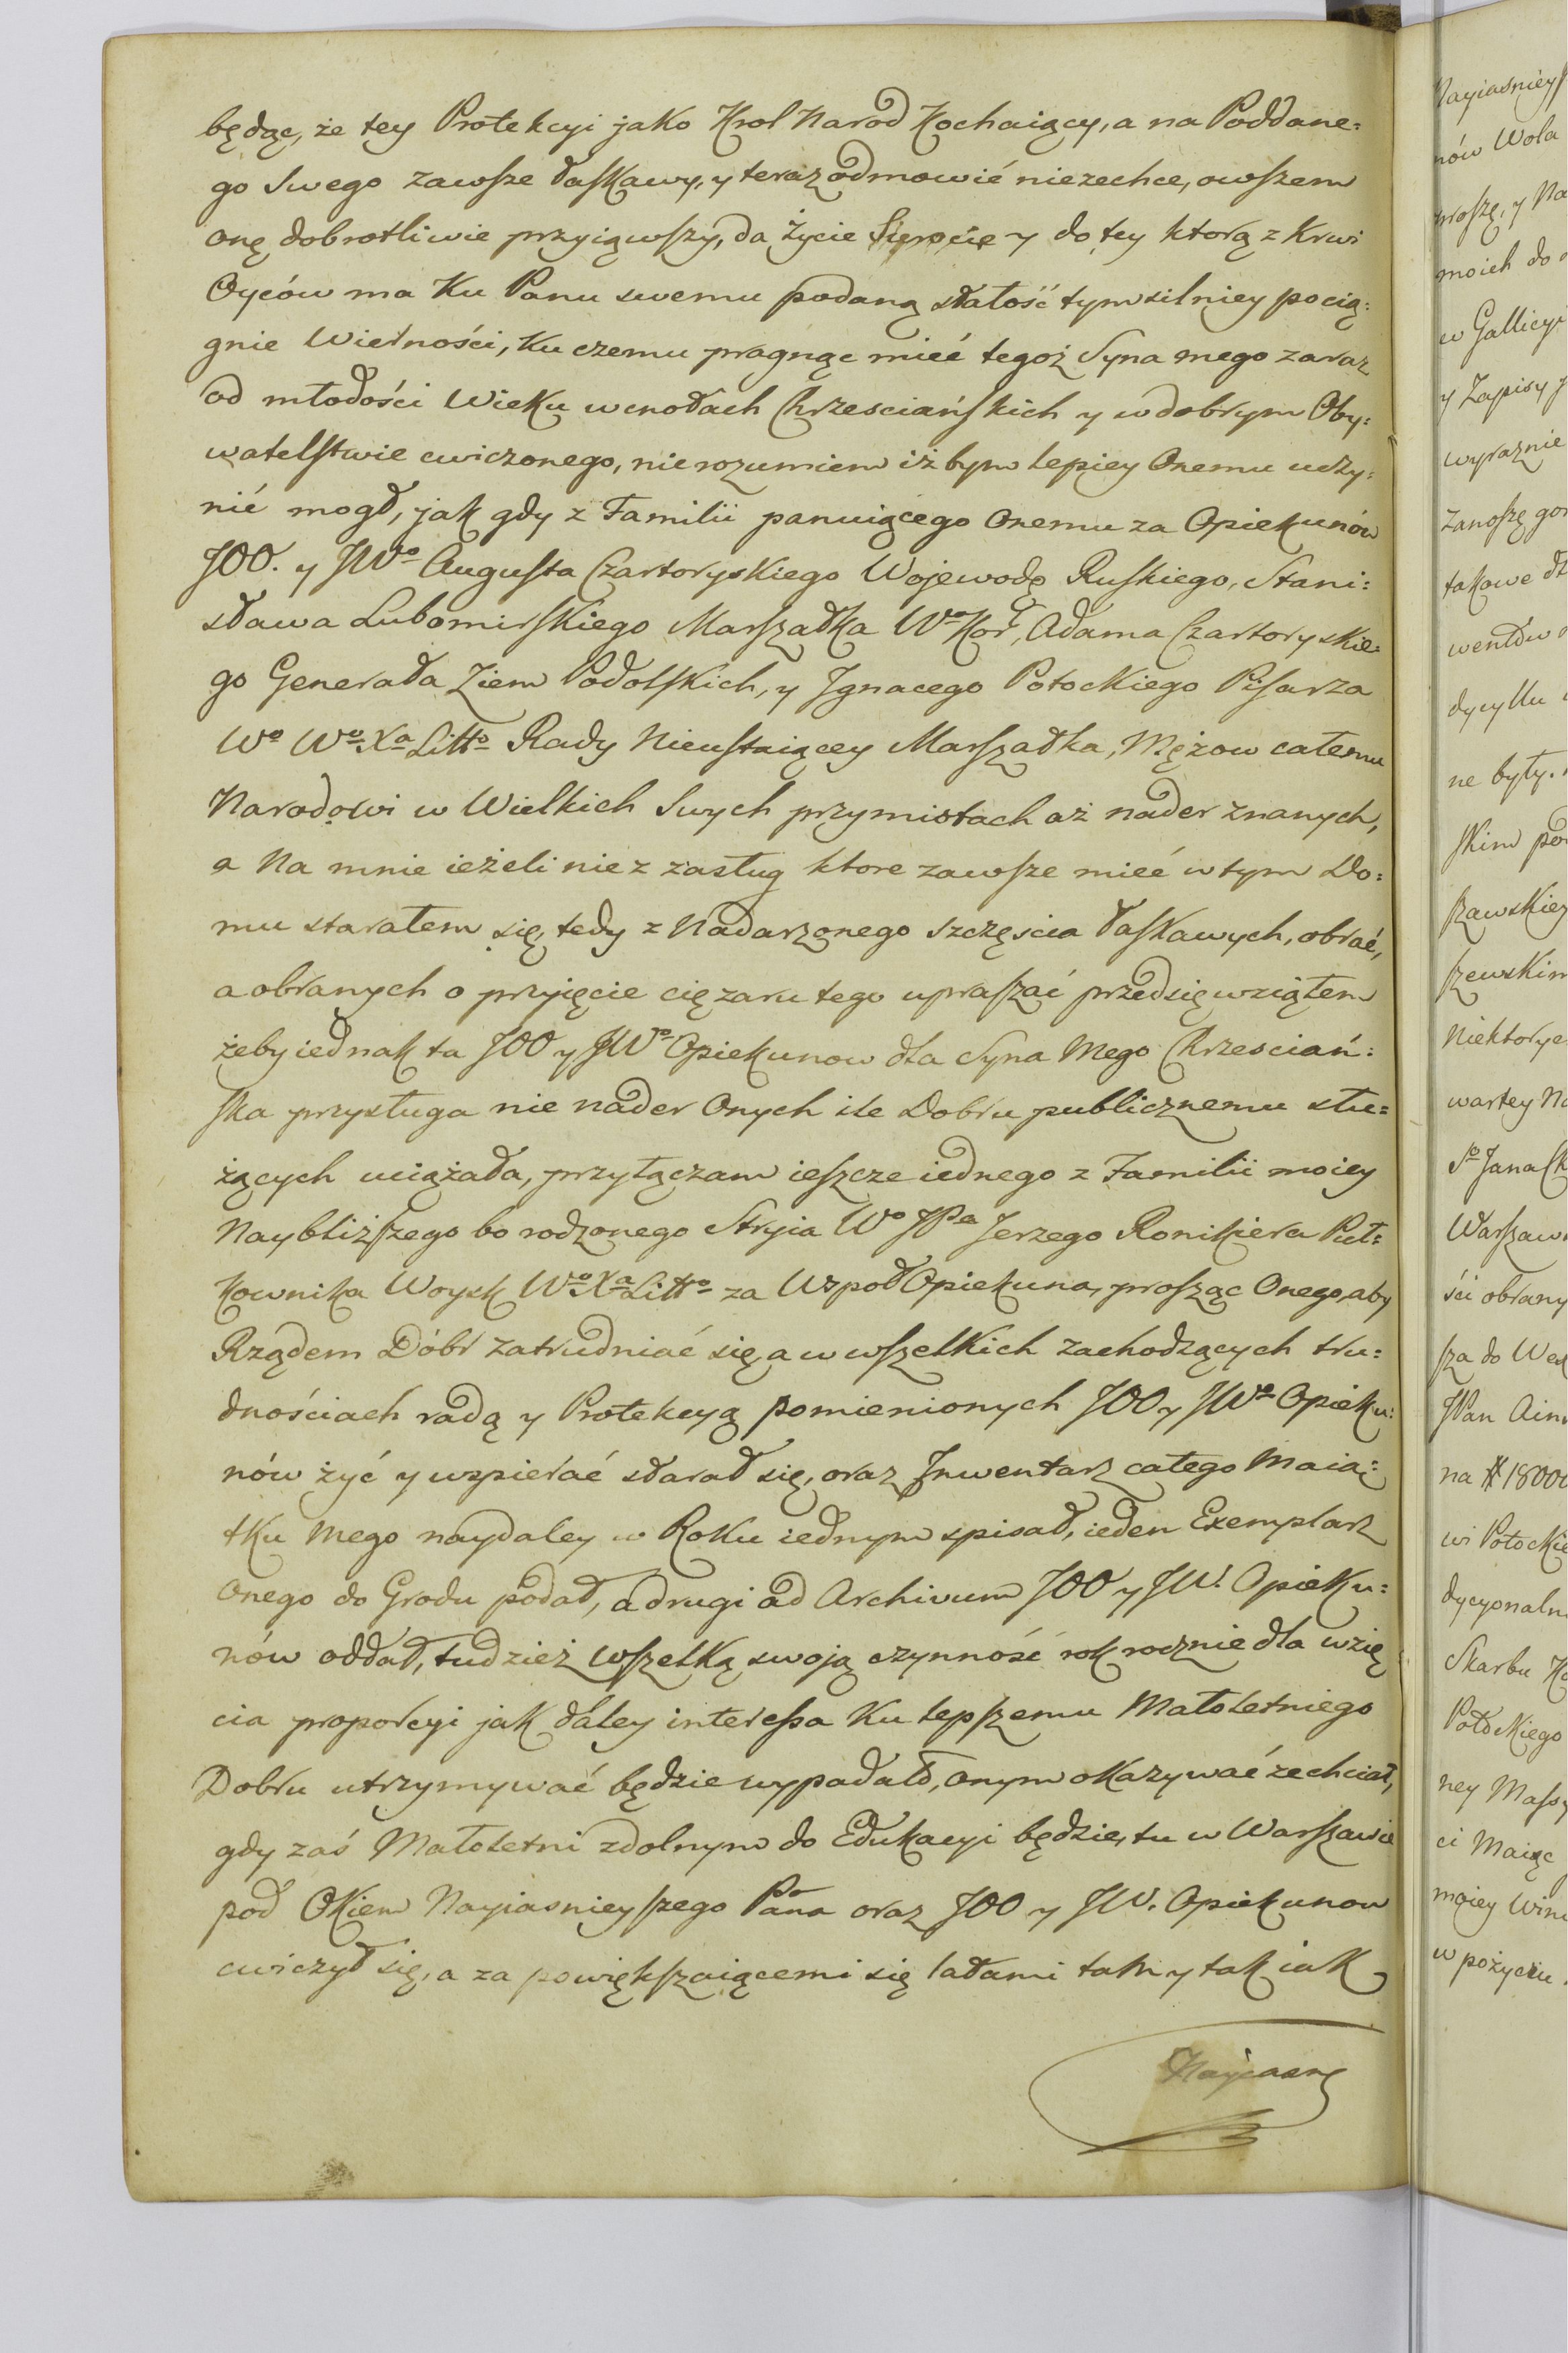 będąc, że tey Protekcyi jako Krol Narod Kochaiący, a na Poddane=
go Swego zawsze łaskawy, y teraz odmowić niezechce, owszem
onę dobrotliwie przyiąwszy, da życie Sierocie y do tey ktorą z Krwi
Oyców ma Ku Panu swemu podaną stałość tym silniey pocią=
gnie Wierności, Ku czemu pragnąc mieć tegoż Syna mego zaraz
od młodości Wieku w cnotach Chrzesciańskich y w dobrym Oby=
watelstwie cwiczonego, nie rozumiem iż bym lepiey Onemu uczy=
nić mogł, jak gdy z Familii panuiącego Onemu za Opiekunów
JOO. y JWo Augusta Czartoryskiego Wojewodę Ruskiego, Stani=
sława Lubomirskiego Marszałka Wo Kor, Adama Czartoryskie=
go Generała Ziem Podolskich, y Jgnacego Potockiego Pisarza
Wo Wo Xa Litto Rady Nieustaiącey Marszałka, Mężow całemu
Narodowi w Wielkich Swych przymiotach aż nader znanych,
a Na mnie ieżeli nie z zasług ktore zawsze mieć w tym Do=
mu starałem się, tedy z Nadarzonego szczęscia łaskawych, obrać,
a obranych o przyjęcie ciężaru tego upraszać przedsięwziąłem
żeby iednak ta JOO y JWo Opiekunow dla Syna Mego Chrzesciań=
ska przysługa nie nader Onych ile Dobru publicznemu słu=
żących uciążała, przyłączam ieszcze iednego z Familii moiey
Naybliższego bo rodzonego Stryia Wo JPa Jerzego Ronikiera Puł=
kownika Woysk Wo Xa Litto za Wspoł Opiekuna, prosząc Onego, aby
Rządem Dóbr zatrudniać się, a w wszelkich zachodzących tru=
dnościach radą y Protekcyą pomienionych JOO y JWo Opieku=
nów żyć y wspierać starał się, oraz Jnwentarz całego Maią=
tku Mego naydaley w Roku iednym spisał, ieden Exemplarz
onego do Grodu podał, a drugi ad Archivum JOO y JW. Opieku=
nów oddał, tudzież wszelką swoją czynność rok rocznie dla wzię
cia proporcyi jak daley interessa Ku lepszemu Małoletniego
Dobru utrzymywać będzie wypadało, onym okazywać zechciał,
gdy zaś Małoletni zdolnym do Edukacyi będzie, tu w Warszawie
pod Okiem Nayiasnieyszego Pana oraz JOO y JW. Opiekunow
cwiczył się, a za powiększaiącemi się latami tam y tak iak
Nayiasn
Nayiasniey
nów Wola
proszę, y Na
moich do
w Gallicyi
y Zapisy
wyraznie
zanoszę gor
takowe
wentów
dycyllu
ne były.
skim
szawskiey
szewskim
Niektorye
wartey
So Jana Ch
Warszaw
ści obrany
sza do
JPan
na # 1800
wi Potockie
dycyonaln
Skarbu
Potockiego
ney Massy
ci Maiąc
moiey
w pożyciu